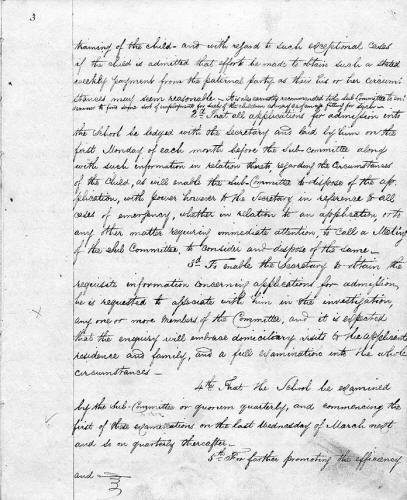 3
training of the child - and with regard to such exceptional cases
if the child is admitted that effort be made to obtain such a stated
weekly payment from the paternal party as their his or her circum
stances may seem reasonable - It is also earnestly recommended to the Sub Committee to
some sort of employment for such of the children as may be found fitting for labor -
2d That all applications for admission into
the School be lodged with the Secretary and laid by him on the
first Monday of each month before the Sub-Committee along
with such information in relation thereto regarding the Circumstances
of the Child, as will enable the Sub-Committee to dispose of the ap-
plication, with power however to the Secretary in reference to all
cases of emergency, whether in relation to an application, or to
any other matter requiring immediate attention, to Call a Meeting
of the Sub Committee, to Consider and dispose of the same -
3d To enable the Secretary to obtain the
requisite information concerning applications for admission,
he is requested to associate with him in the investigation,
any one or more Members of the Committee, and it is expected
that the enquiry will embrace domiciliary visits to the applicants
residence and family, and a full examination into the whole
circumstances -
4th That the School be examined
by the Sub-Committee or quorum quarterly, and commencing the
first of these examinations on the last Wednesday of March next
and so on quarterly thereafter -
5th For farther promoting the efficiency
and